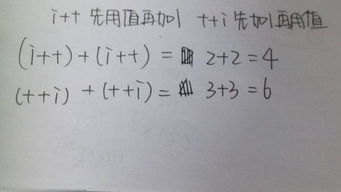 i++ 先用值再加1 ++i 先加1再用值
(i++)+(i++) = 2+2=4
(++i) +(++i)= 3+3 =6